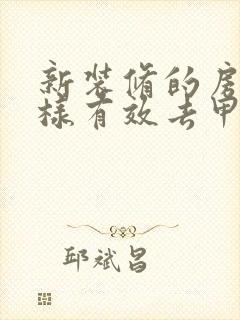 新装修的房
样有效去甲
邱斌昌